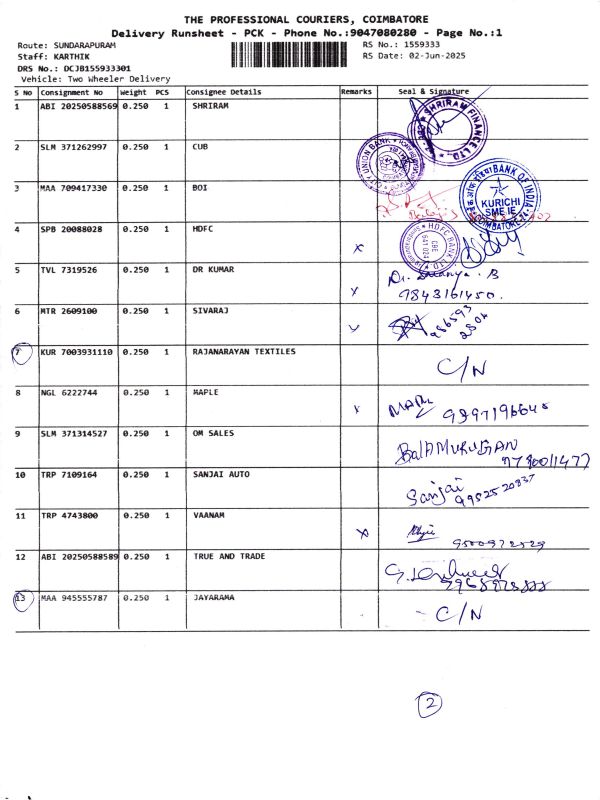 THE PROFESSIONAL COURIERS, COIMBATORE
Delivery Runsheet - PCK - Phone No.:9047080280 - Page No.:1
Route: SUNDARAPURAM RS No.: 1559333
Staff: KARTHIK RS Date: 02-Jun-2025
DRS No.: DCJB155933301
Vehicle: Two Wheeler Delivery
S No Consignment No Weight PCS Consignee Details Remarks Seal & Signature
1 ABI 20250588569 0.250 1 SHRIRAM SHRIRAM FINANCE LTD.
2 SLM 371262997 0.250 1 CUB CITY UNION BANK
3 MAA 709417330 0.250 1 BOI BANK OF INDIA KURICHI SME IE COIMBATORE
4 SPB 20088028 0.250 1 HDFC HDFC BANK LTD CBE 641 024
5 TVL 7319526 0.250 1 DR KUMAR
9843161450.
6 MTR 2609100 0.250 1 SIVARAJ
7 KUR 7003931110 0.250 1 RAJANARAYAN TEXTILES C/N
8 NGL 6222744 0.250 1 MAPLE
9 SLM 371314527 0.250 1 OM SALES BalAMURUGAN
10 TRP 7109164 0.250 1 SANJAI AUTO Sanjai
9952520837
11 TRP 4743800 0.250 1 VAANAM
12 ABI 20250588589 0.250 1 TRUE AND TRADE
13 MAA 945555787 0.250 1 JAYARAMA C/N
2